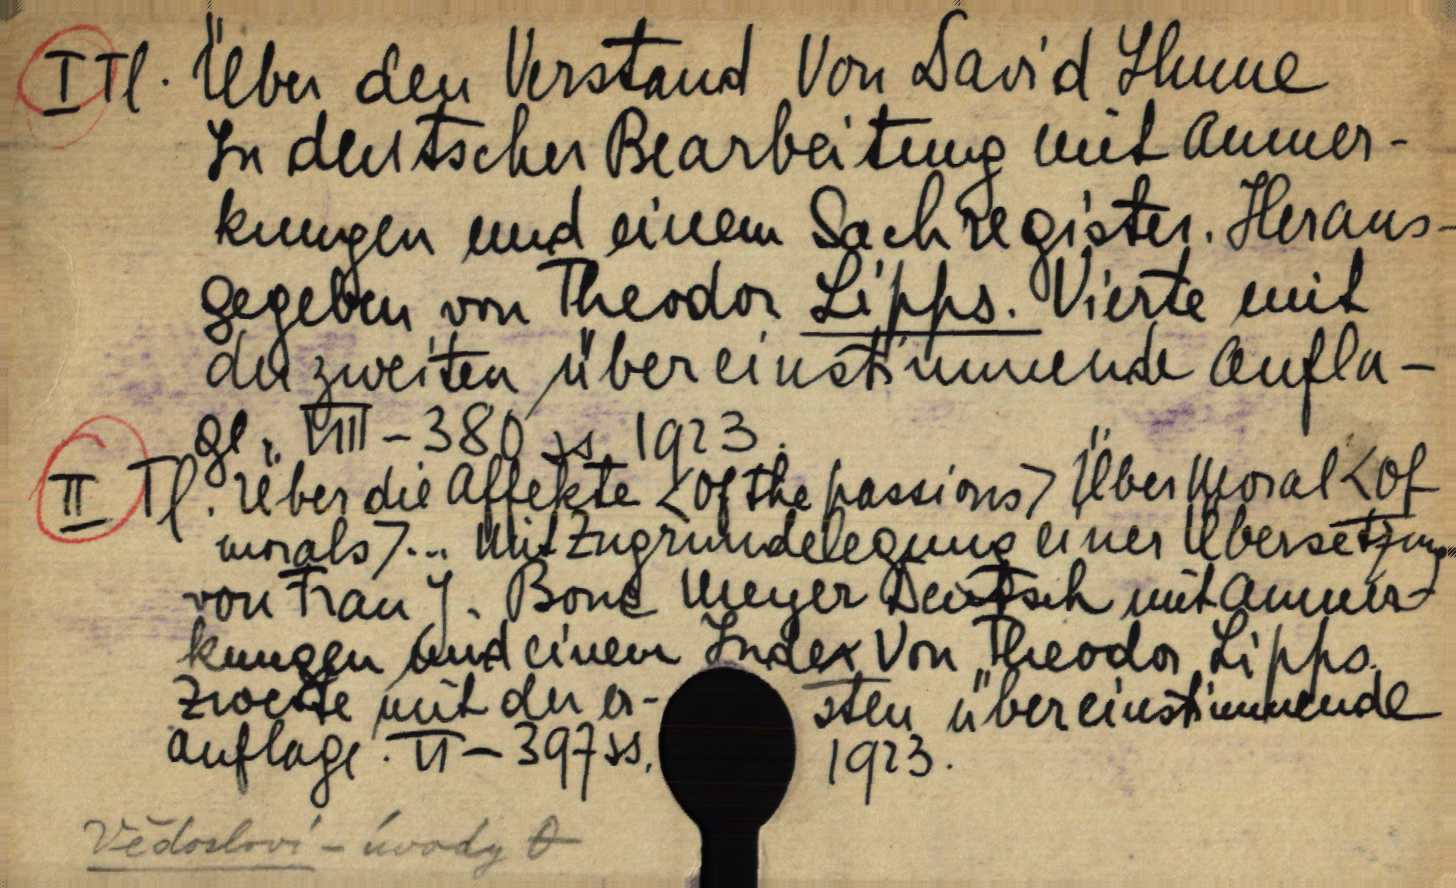 I Tl. Über den Verstand Von David Hume
In deutscher Bearbeitung mit Anmer-
kungen und einem Sachregister. Heraus-
gegeben von Theodor Lipps. Vierte mit
der zweiten übereinstimmende Aufla-
ge. VIII - 380 ss 1923.
II Tl. Über die Affekte <Of the passions> Über Moral <Of
morals>... Mit Zugrundelegung einer Übersetzung
von Frau J. Bona Meyer Deutsch mit Anmer-
kungen und einem Index Von Theodor Lipps.
Zweite mit der er- sten übereinstimmende
Auflage. VI - 397 ss. 1923.
Vědosloví - úvody